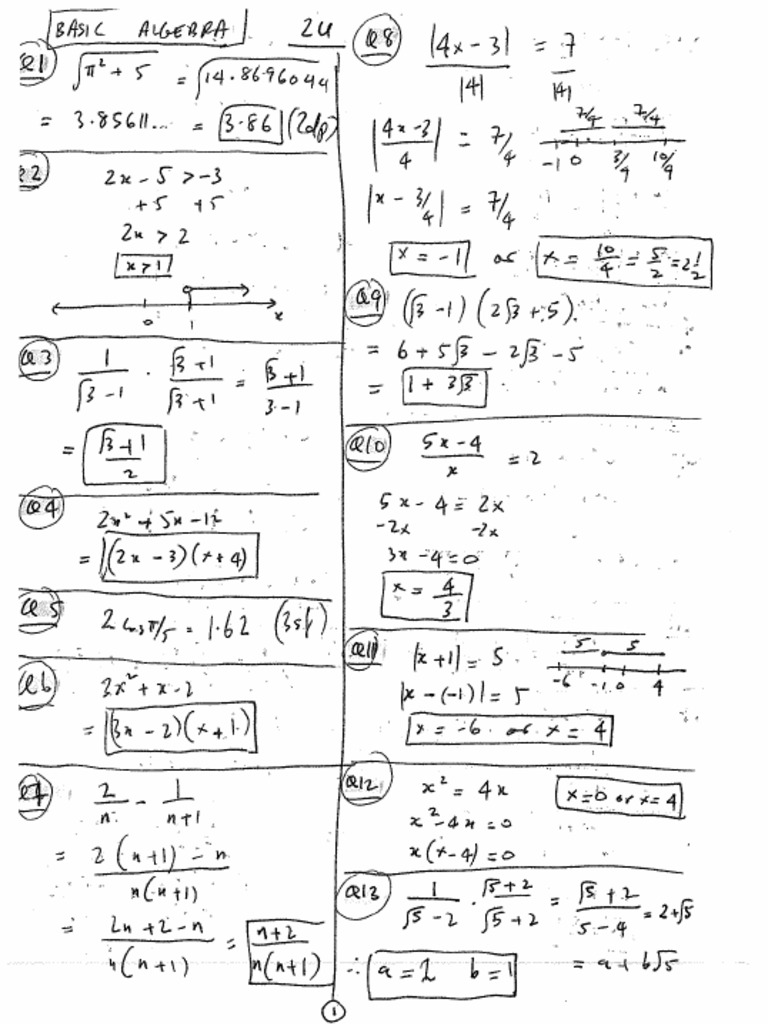 BASIC ALGEBRA 2U
Q1 √(π² + 5) = √(14.8696044)
= 3.85611... = 3.86 (2dp)
Q2 2x - 5 > -3
+5 +5
2x > 2
x > 1
0 1 x
Q3 1/(√3 - 1) · (√3 + 1)/(√3 + 1) = (√3 + 1)/(3 - 1)
= (√3 + 1)/2
Q4 2x² + 5x - 12
= (2x - 3)(x + 4)
Q5 2 cos π/5 = 1.62 (3sf)
Q6 3x² + x - 2
= (3x - 2)(x + 1)
Q7 2/n - 1/(n+1)
= (2(n+1) - n)/(n(n+1))
= (2n + 2 - n)/(n(n+1)) = (n+2)/(n(n+1))
Q8 |4x - 3|/|4| = 7/|4|
|(4x - 3)/4| = 7/4
7/4 7/4
-1 0 3/4 10/4
|x - 3/4| = 7/4
x = -1 or x = 10/4 = 5/2 = 2 1/2
Q9 (√3 - 1)(2√3 + 5)
= 6 + 5√3 - 2√3 - 5
= 1 + 3√3
Q10 (5x - 4)/x = 2
5x - 4 = 2x
-2x -2x
3x - 4 = 0
x = 4/3
Q11 |x + 1| = 5
5 5
-6 -1 0 4
|x - (-1)| = 5
x = -6 or x = 4
Q12 x² = 4x
x = 0 or x = 4
x² - 4x = 0
x(x - 4) = 0
Q13 1/(√5 - 2) · (√5 + 2)/(√5 + 2) = (√5 + 2)/(5 - 4) = 2 + √5
= a + b√5
∴ a = 2 b = 1
1